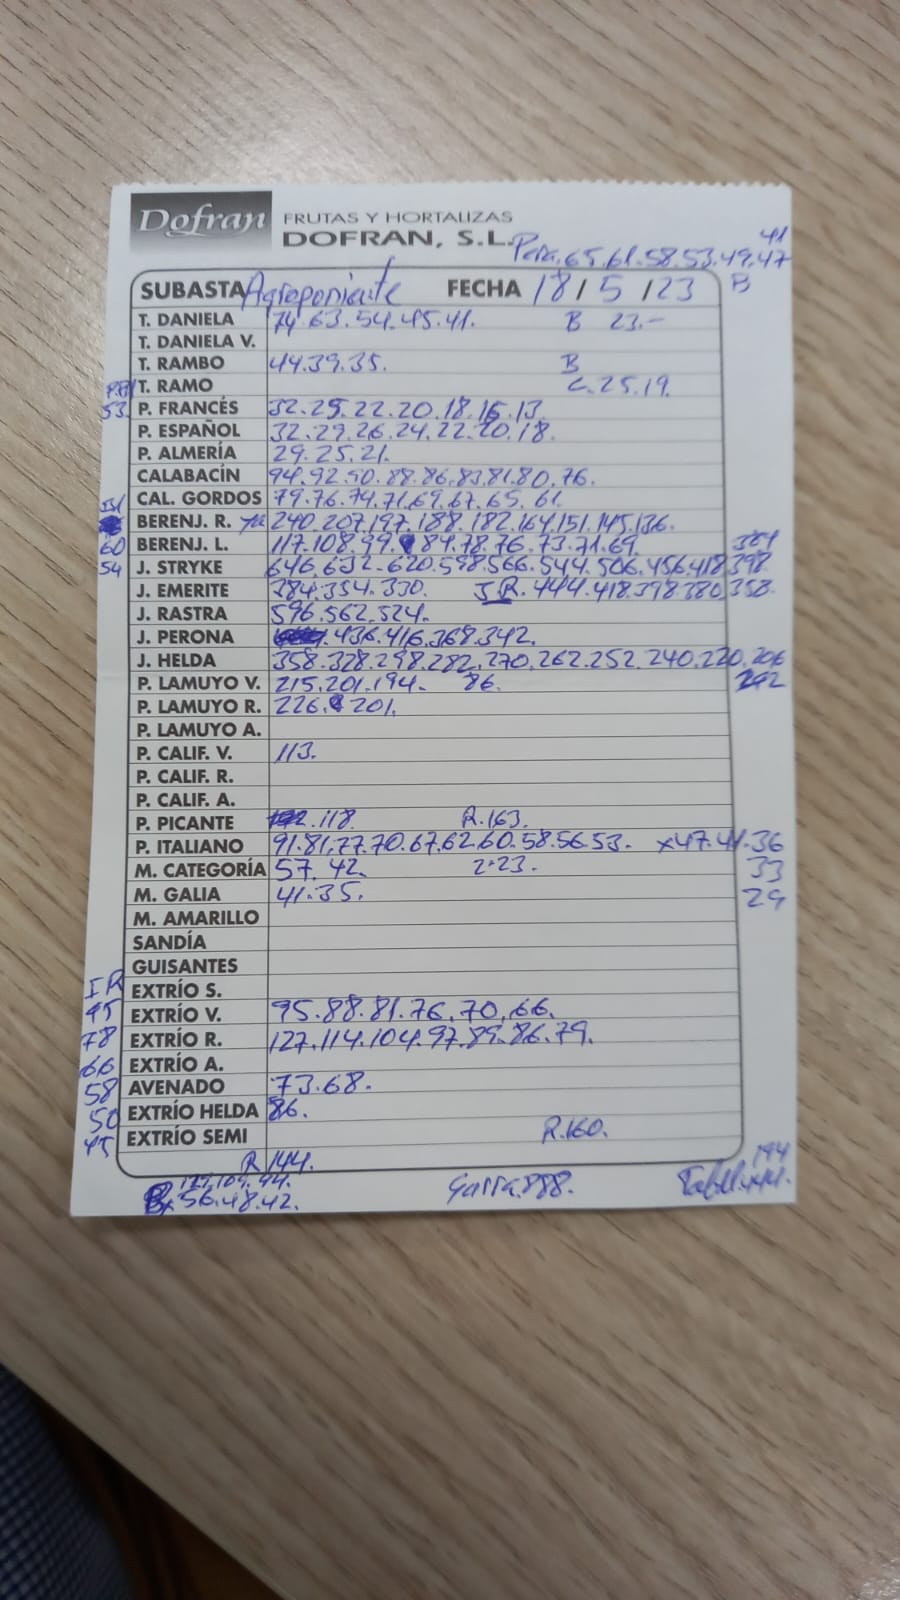 Dofran FRUTAS Y HORTALIZAS
DOFRAN, S.L.
41
Pera.65.61.58.53.49.47
SUBASTA Agroponiente FECHA 18/5/23 B
T. DANIELA 74.63.54.45.41. B 23.-
T. DANIELA V.
T. RAMBO 44.39.35. B
T. RAMO C.25.19.
53 P. FRANCÉS 32.25.22.20.18.16.13.
P. ESPAÑOL 32.29.26.24.22.20.18.
P. ALMERÍA 29.25.21.
CALABACÍN 94.92.90.88.86.83.81.80.76.
CAL. GORDOS 79.76.74.71.69.67.65.61.
BERENJ. R. 240.207.197.188.182.164.151.145.136.
60 BERENJ. L. 117.108.99.84.78.76.73.71.69. 384
54 J. STRYKE 646.632.620.598.566.544.506.456.418.398.
J. EMERITE 384.354.330. JR.444.418.398.380.358.
J. RASTRA 596.562.524.
J. PERONA .436.416.368.342.
J. HELDA 358.328.298.282.270.262.252.240.220.206
P. LAMUYO V. 215.201.194. 86.
P. LAMUYO R. 226.201.
P. LAMUYO A.
P. CALIF. V. 113.
P. CALIF. R.
P. CALIF. A.
P. PICANTE .118 R.163.
P. ITALIANO 91.81.77.70.67.62.60.58.56.53. x47.41.36
M. CATEGORÍA 57.42. 2ª23. 33
M. GALIA 41.35. 29
M. AMARILLO
SANDÍA
GUISANTES
IR EXTRÍO S.
95 EXTRÍO V. 95.88.81.76.70.66.
78 EXTRÍO R. 127.114.104.97.89.86.79.
66 EXTRÍO A.
58 AVENADO 73.68.
50 EXTRÍO HELDA 86.
45 EXTRÍO SEMI R.160.
R 144.
194
56.48.42. Garra.888.